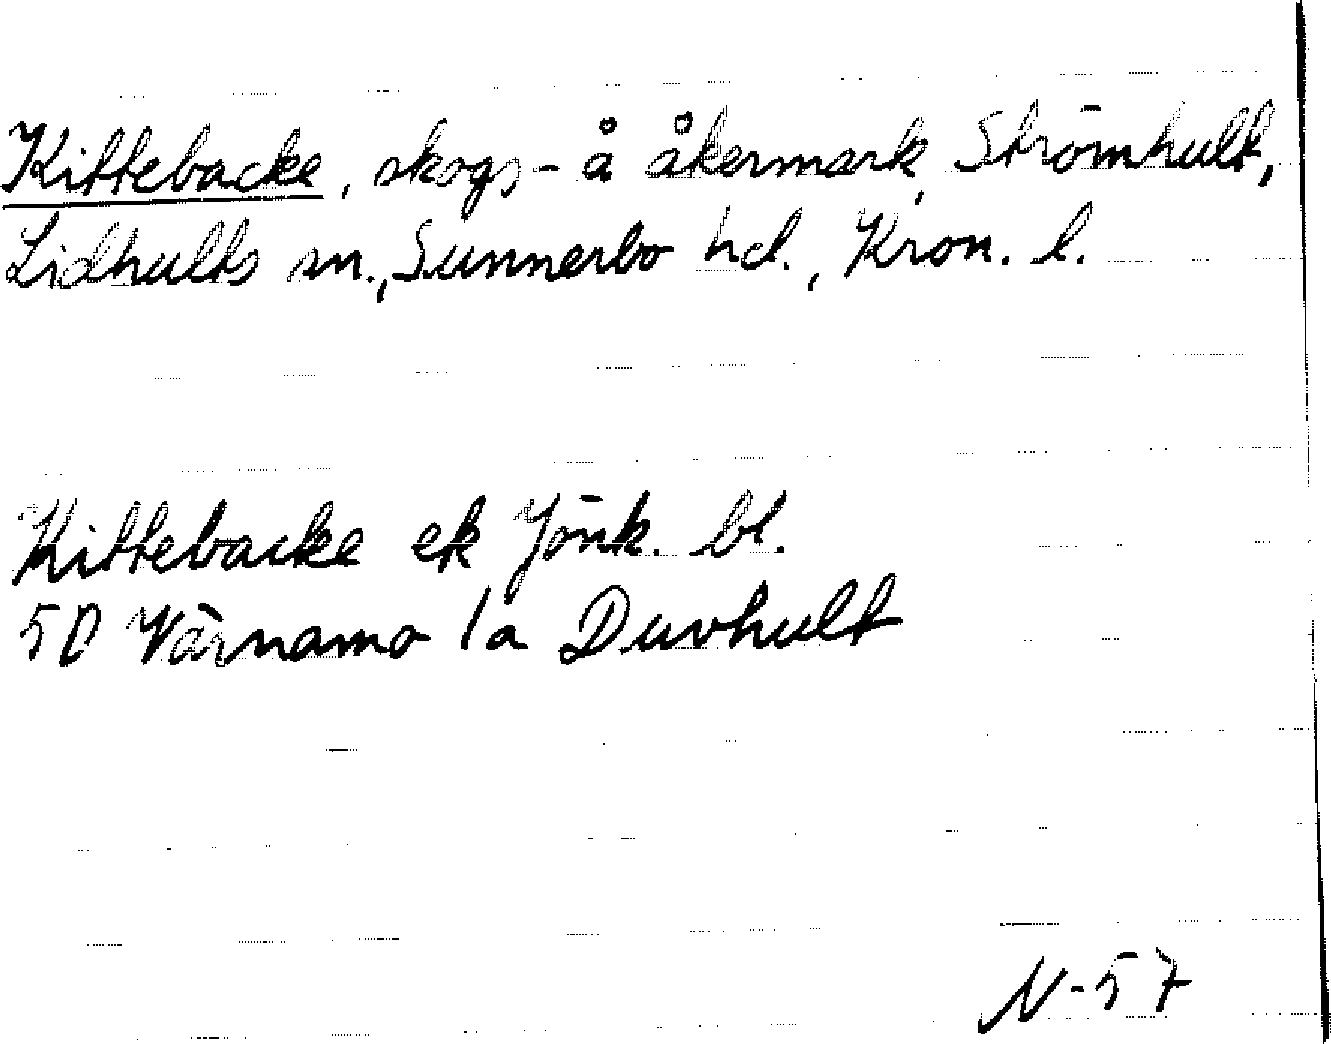 Kittebacke, skogs- å åkermark, Strömhult,
Lidhults sn., Sunnerbo hd., Kron. l.
Kittebacke ek Jönk. bl.
5D Värnamo /a Duvhult
N-57